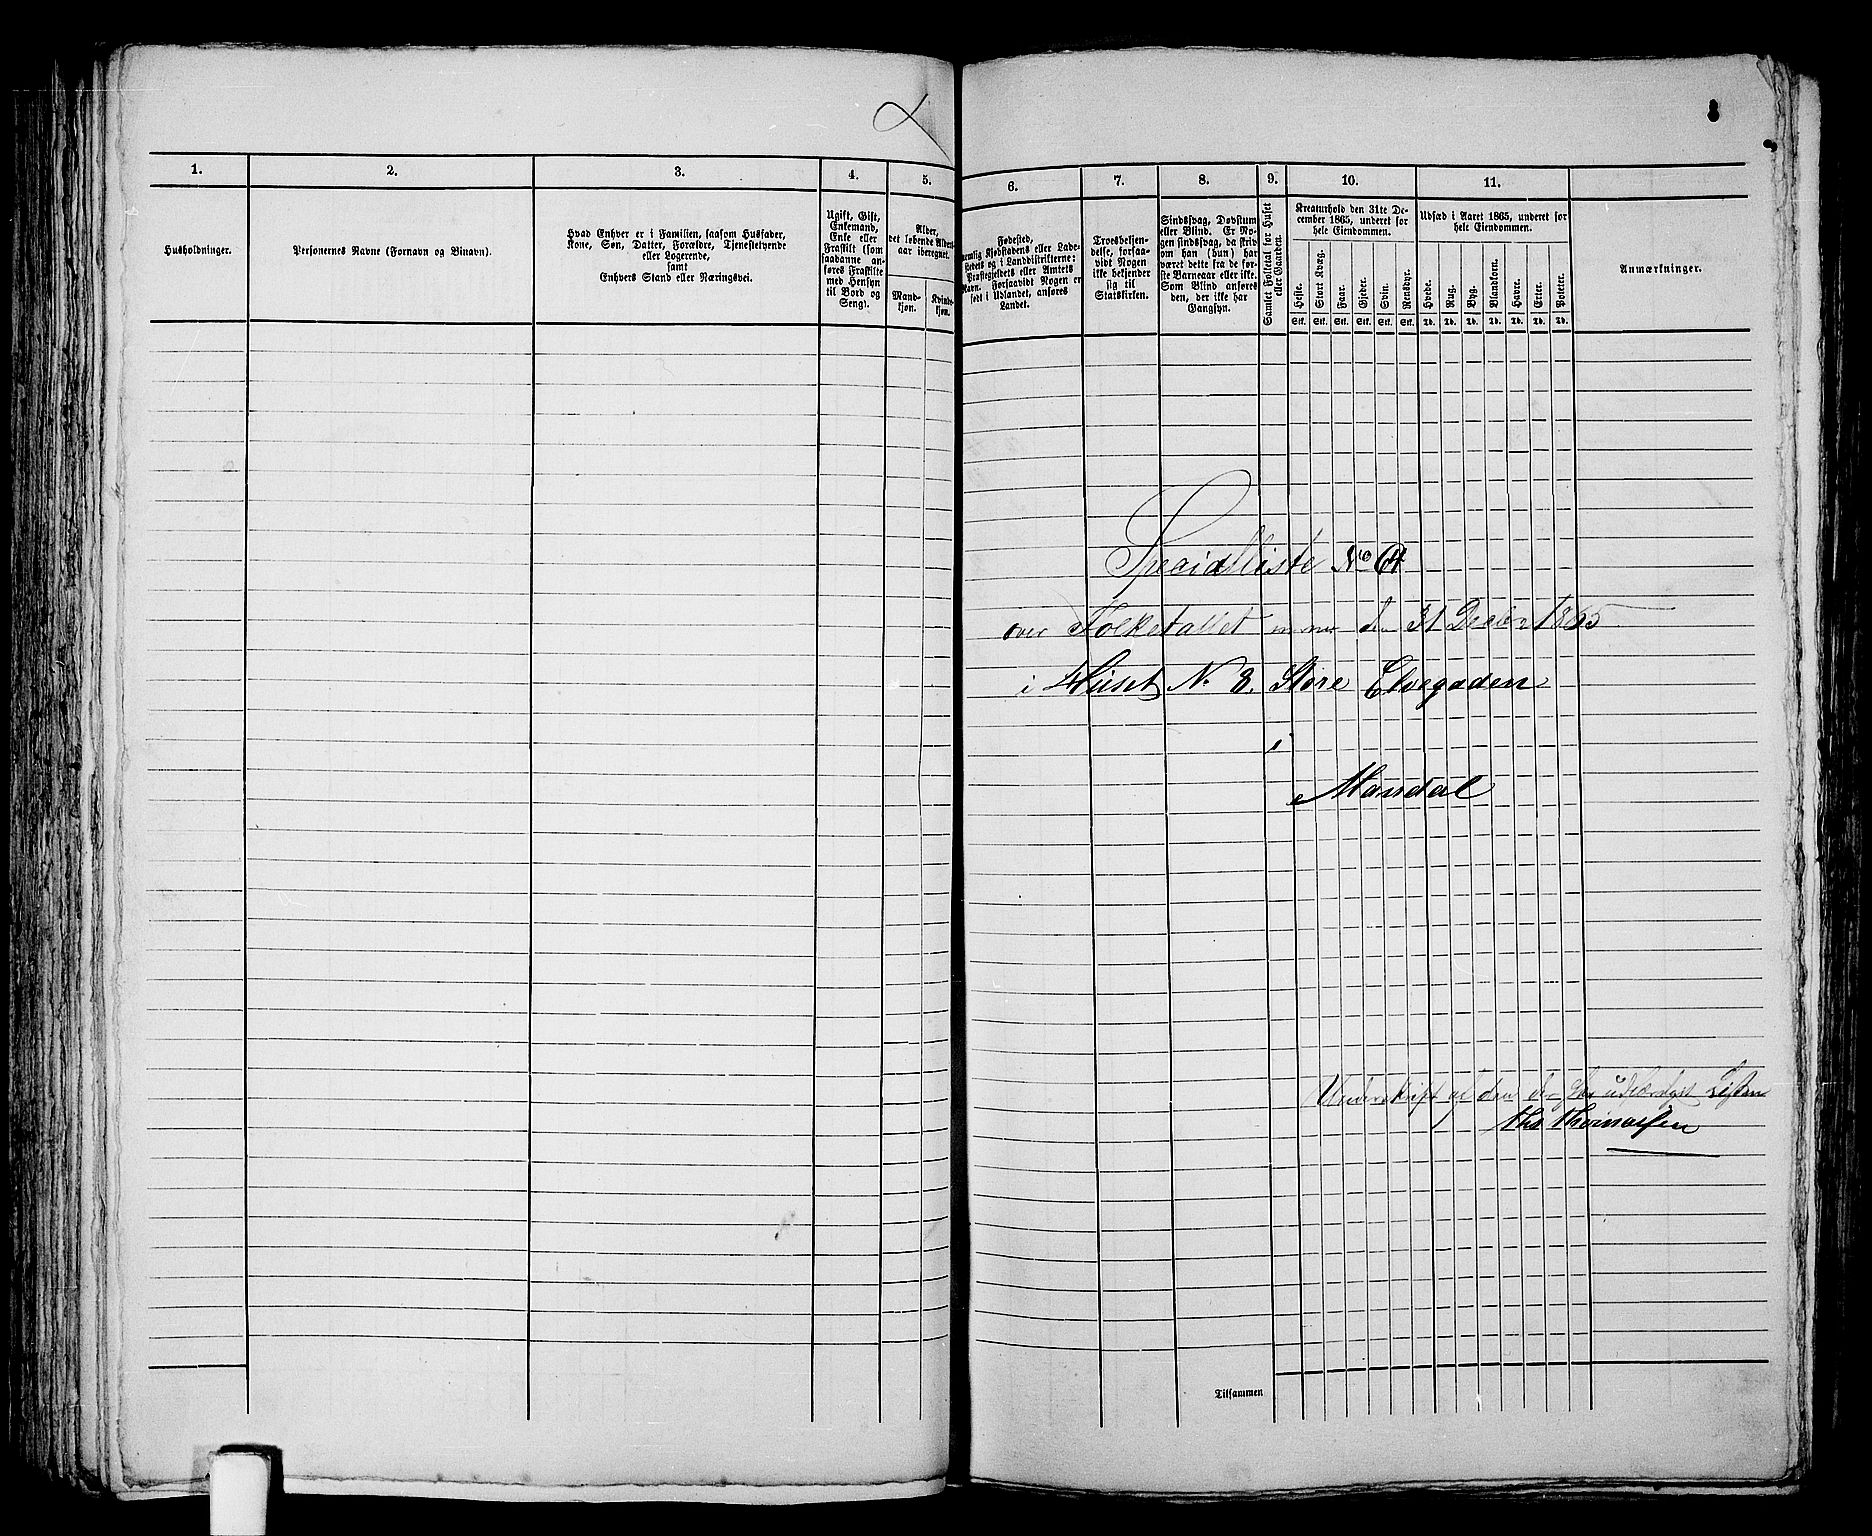 1.
2.
3.
4.
5.
Husholdninger.
Personernes Navne (Fornavn og Binavn).
Hvad Enhver er i Familien, saasom Husfader,
Kone, Søn, Datter, Forældre, Tjenestetyende
eller Logerende,
samt
Enhvers Stand eller Næringsvei.
Ugift, Gift,
Enkemand,
Enke eller
Fraskilt (som
saadanne an-
føres Fraskilte
med Hensyn
til Bord og
Seng).
Alder,
det løbende Alders-
aar iberegnet.
Mand-
kjøn.
Kvinde-
kjøn.
8
6.
7.
8.
9.
10.
11.
Fødested,
nemlig Kjøbstadens eller Lade-
stedets og i Landdistrikterne:
Præstegjeldets eller Amtets
Navn. Forsaavidt Nogen er
født i Udlandet, anføres
Landet.
Troesbekjen-
delse, forsaa-
vidt Nogen
ikke bekjender
sig til
Statskirken.
Sindssvag, Døvstum
eller Blind. Er No-
gen sindssvag, da skriv
om han (hun) har
været dette fra de før-
ste Barneaar eller ikke.
Som Blind anføres
den, der ikke har
Gangsyn.
Samlet Folketal for Huset
eller Gaarden.
Kreaturhold den 31te De-
cember 1865, underet for
hele Eiendommen.
Heste.
Stort Kvæg.
Faar.
Gjeder.
Svin.
Rensdyr.
Stk. Stk. Stk. Stk. Stk. Stk.
Udsæd i Aaret 1865, underet for
hele Eiendommen.
Hvede.
Rug.
Byg.
Blandkorn.
Havre.
Erter.
Poteter.
Td. Td. Td. Td. Td. Td. Td.
Anmærkninger.
Specialliste No
over Folketallet den 31 Decbr 1865
i Huset N. 3. Store Elvegaden
i
Mandal
Underskrift af den der har udfærdiget Listen
Ths Thomassen
Tilsammen